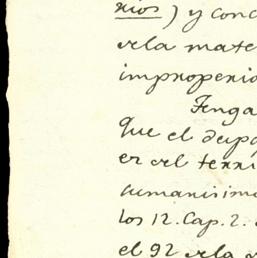 rios) y conc
de la mate
improperio
Tenga
que el dupo
er el terri
cumanisimo
los 12. Cap. 2.
el 92 de la